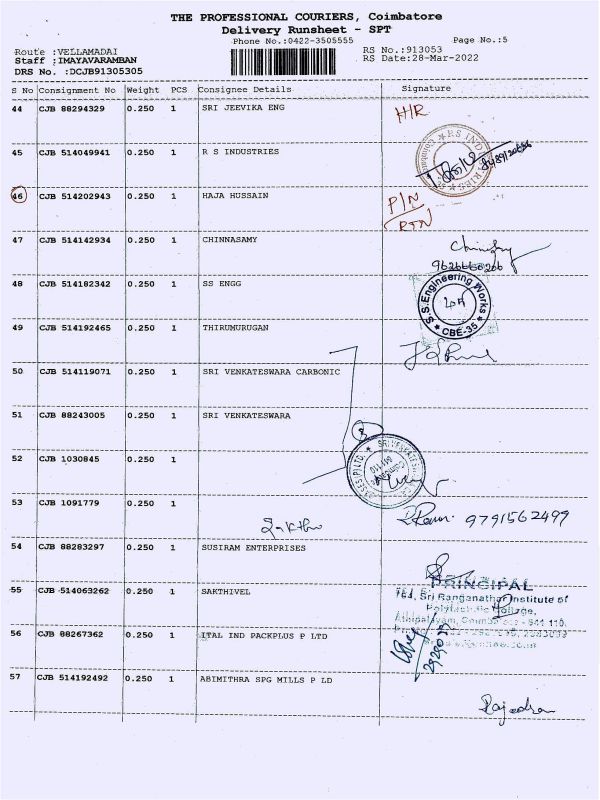 THE PROFESSIONAL COURIERS, Coimbatore
Delivery Runsheet - SPT
Phone No.:0422-3505555
Page No.:5
Route :VELLAMADAI
RS No.:913053
Staff :IMAYAVARAMBAN
RS Date:28-Mar-2022
DRS No. :DCJB91305305
S No Consignment No Weight PCS Consignee Details Signature
44 CJB 88294329 0.250 1 SRI JEEVIKA ENG H/R
45 CJB 514049941 0.250 1 R S INDUSTRIES
46 CJB 514202943 0.250 1 HAJA HUSSAIN P/N
RTN
47 CJB 514142934 0.250 1 CHINNASAMY
48 CJB 514182342 0.250 1 SS ENGG
S.S.Engineering Works
CBE-35
49 CJB 514192465 0.250 1 THIRUMURUGAN
50 CJB 514119071 0.250 1 SRI VENKATESWARA CARBONIC
51 CJB 88243005 0.250 1 SRI VENKATESWARA
52 CJB 1030845 0.250 1
53 CJB 1091779 0.250 1
9791562499
54 CJB 88283297 0.250 1 SUSIRAM ENTERPRISES
PRINCIPAL
55 CJB 514063262 0.250 1 SAKTHIVEL
Sri Ranganathar Institute of
Polytechnic College,
Athipalayam, Coimbatore - 641 110.
56 CJB 88267362 0.250 1 ITAL IND PACKPLUS P LTD
57 CJB 514192492 0.250 1 ABIMITHRA SPG MILLS P LD